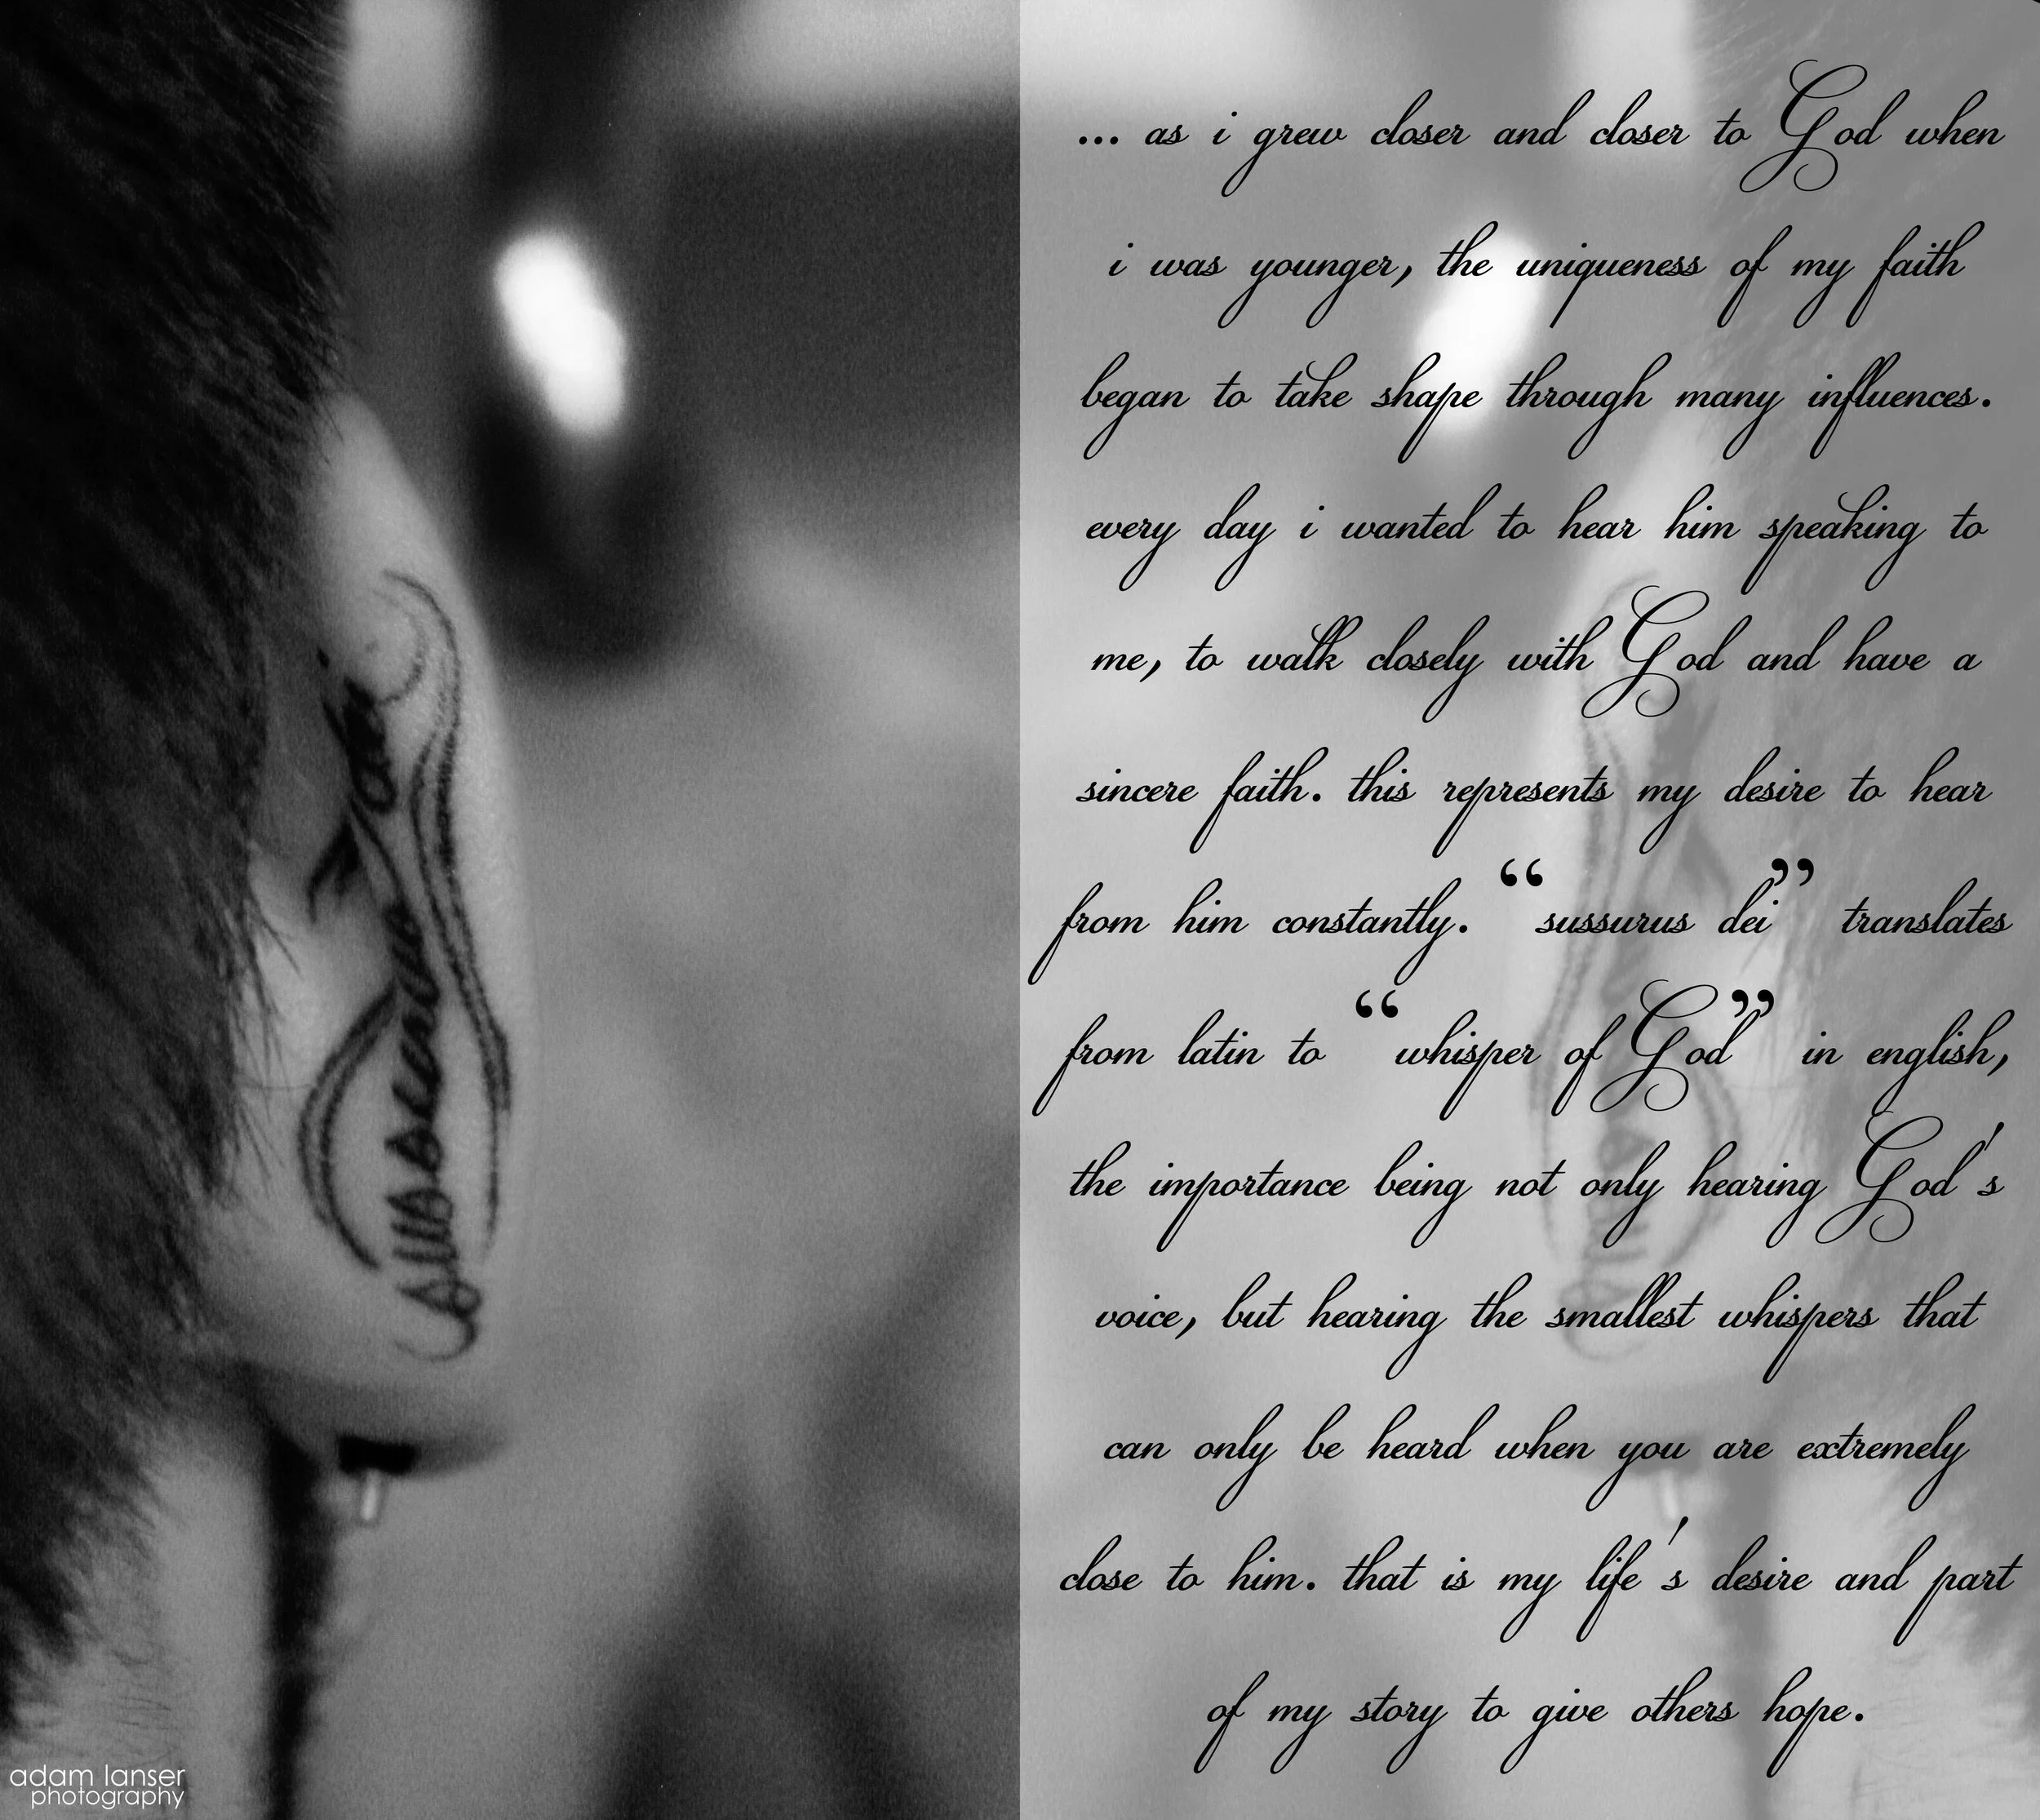 sussurus dei
... as i grew closer and closer to God when
i was younger, the uniqueness of my faith
began to take shape through many influences.
every day i wanted to hear him speaking to
me, to walk closely with God and have a
sincere faith. this represents my desire to hear
from him constantly. “sussurus dei” translates
from latin to “whisper of God” in english,
the importance being not only hearing God's
voice, but hearing the smallest whispers that
can only be heard when you are extremely
close to him. that is my life's desire and part
of my story to give others hope.
adam lanser
photography